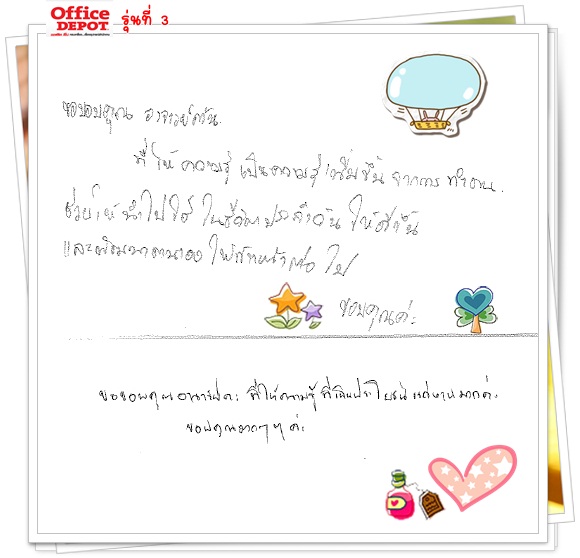 Office DEPOT รุ่นที่ 3
ขอขอบคุณ อาจารย์
ที่ให้ความรู้ เป็นความรู้เพิ่มขึ้น จากการทำงาน.
ช่วยให้นำไปใช้ ในชีวิตประจำวัน ให้ดีขึ้น
และพัฒนาตนเอง ให้ก้าวหน้าต่อ ไป
ขอบคุณค่ะ
ขอขอบคุณอาจารย์ค่ะ ที่ให้ความรู้ ที่เป็นประโยชน์ แก่งานมากค่ะ
ขอบคุณมากๆ ๆ ค่ะ